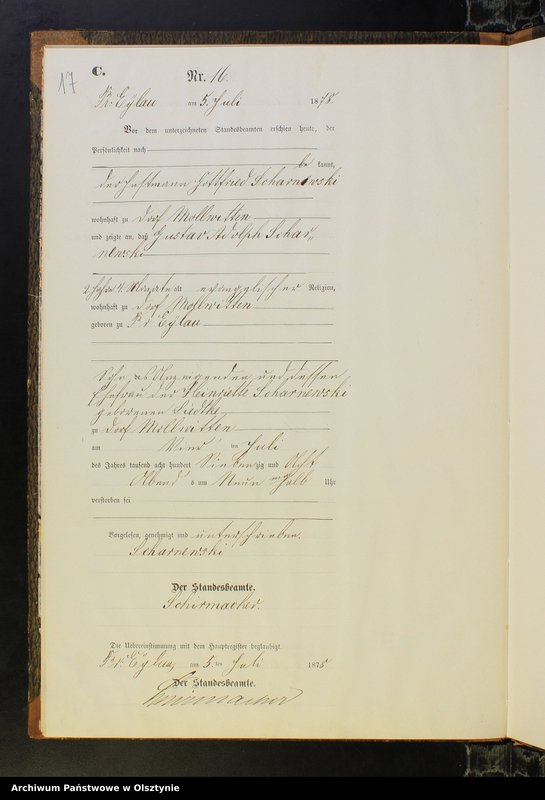 17
C.
Nr. 16.
Pr. Eylau am 5. Juli 1878.
Vor dem unterzeichneten Standesbeamten erschien heute, der
Persönlichkeit nach
be kannt,
der Gottfried Scharnowski
wohnhaft zu Dorf Mollwitten
und zeigte an, daß Gustav Adolph Schar„
newski
2 Jahre 4 Monate alt evangelischer Religion,
wohnhaft zu Dorf Mollwitten
geboren zu Pr. Eylau
Sohn des Anzeigenden und dessen
Ehefrau der Heinriette Scharnewski
geborenen Liedtke
zu Dorf Mollwitten
am Vier ten Juli
des Jahres tausend acht hundert Siebenzig und Acht
Abend s um Neun ein halb Uhr
verstorben sei
Vorgelesen, genehmigt und unterschrieben.
Scharnewski
Der Standesbeamte.
Schirmacher.
Die Uebereinstimmung mit dem Hauptregister beglaubigt
Pr. Eylau, am 5. ten Juli 1878
Der Standesbeamte.
Schirmacher
Archiwum Państwowe w Olsztynie